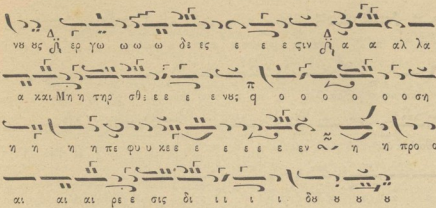 νȣς ερ γω ω ω ω δε ες ε ε ε ςιν α α αλ λα
α και Μη η τηρ σθε ε ε ε ε νȣς ο ο ο ο ο ο ο ση
η η η η πε φυ υ κε ε ε ε ε ε ε εν η η προ ο
αι αι αι ρε ε σις δι ι ι ι ι δȣ ȣ ȣ ȣ